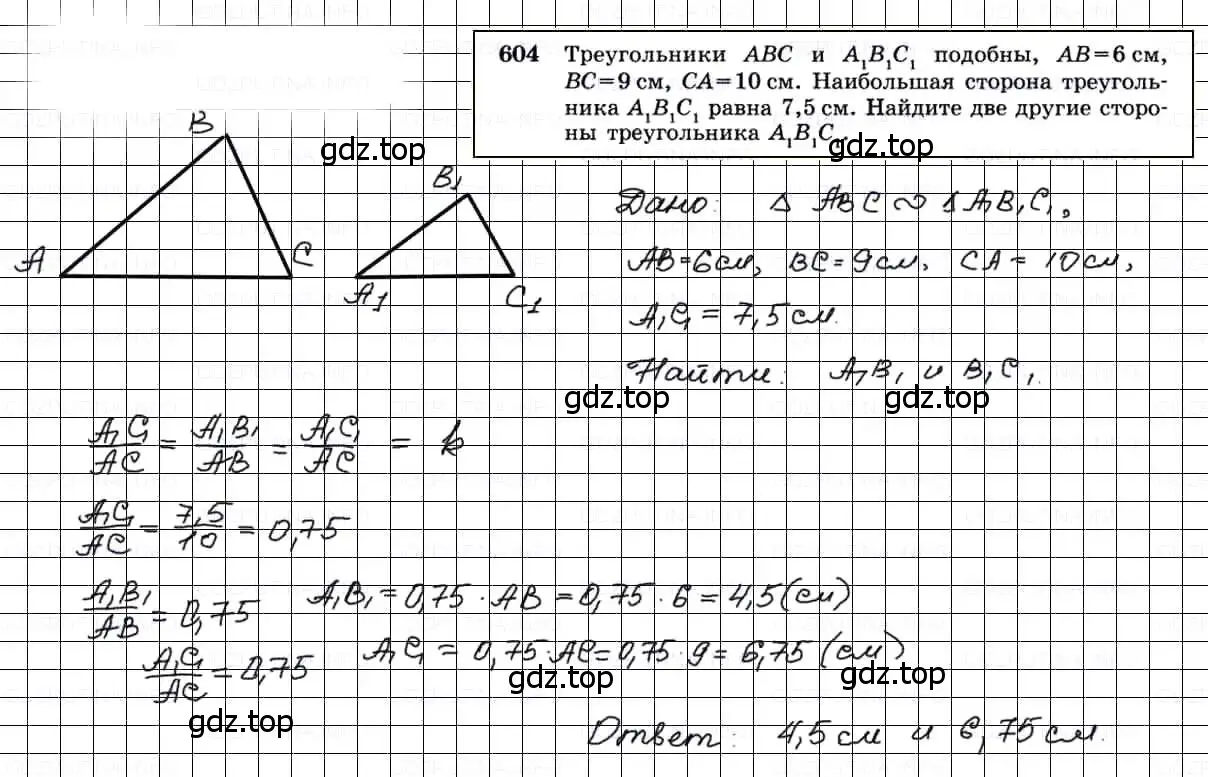 604 Треугольники ABC и A₁B₁C₁ подобны, AB=6 см,
BC=9 см, CA=10 см. Наибольшая сторона треуголь-
ника A₁B₁C₁ равна 7,5 см. Найдите две другие сторо-
ны треугольника A₁B₁C₁.
B
gdz.top
gdz.top
B₁
A
C
A₁
C₁
Дано: Δ ABC ∾ Δ A₁B₁C₁,
AB=6см, BC=9см, CA=10см,
A₁C₁=7,5см.
Найти: A₁B₁ и B₁C₁.
gdz.top
gdz.top
A₁C₁/AC = A₁B₁/AB = A₁C₁/AC = k
A₁C₁/AC = 7,5/10 = 0,75
A₁B₁/AB = 0,75 A₁B₁ = 0,75 · AB = 0,75 · 6 = 4,5 (см)
A₁C₁/AC = 0,75 A₁C₁ = 0,75 · AC = 0,75 · 9 = 6,75 (см)
gdz.top
gdz.top
gdz.top
Ответ: 4,5 см и 6,75 см.